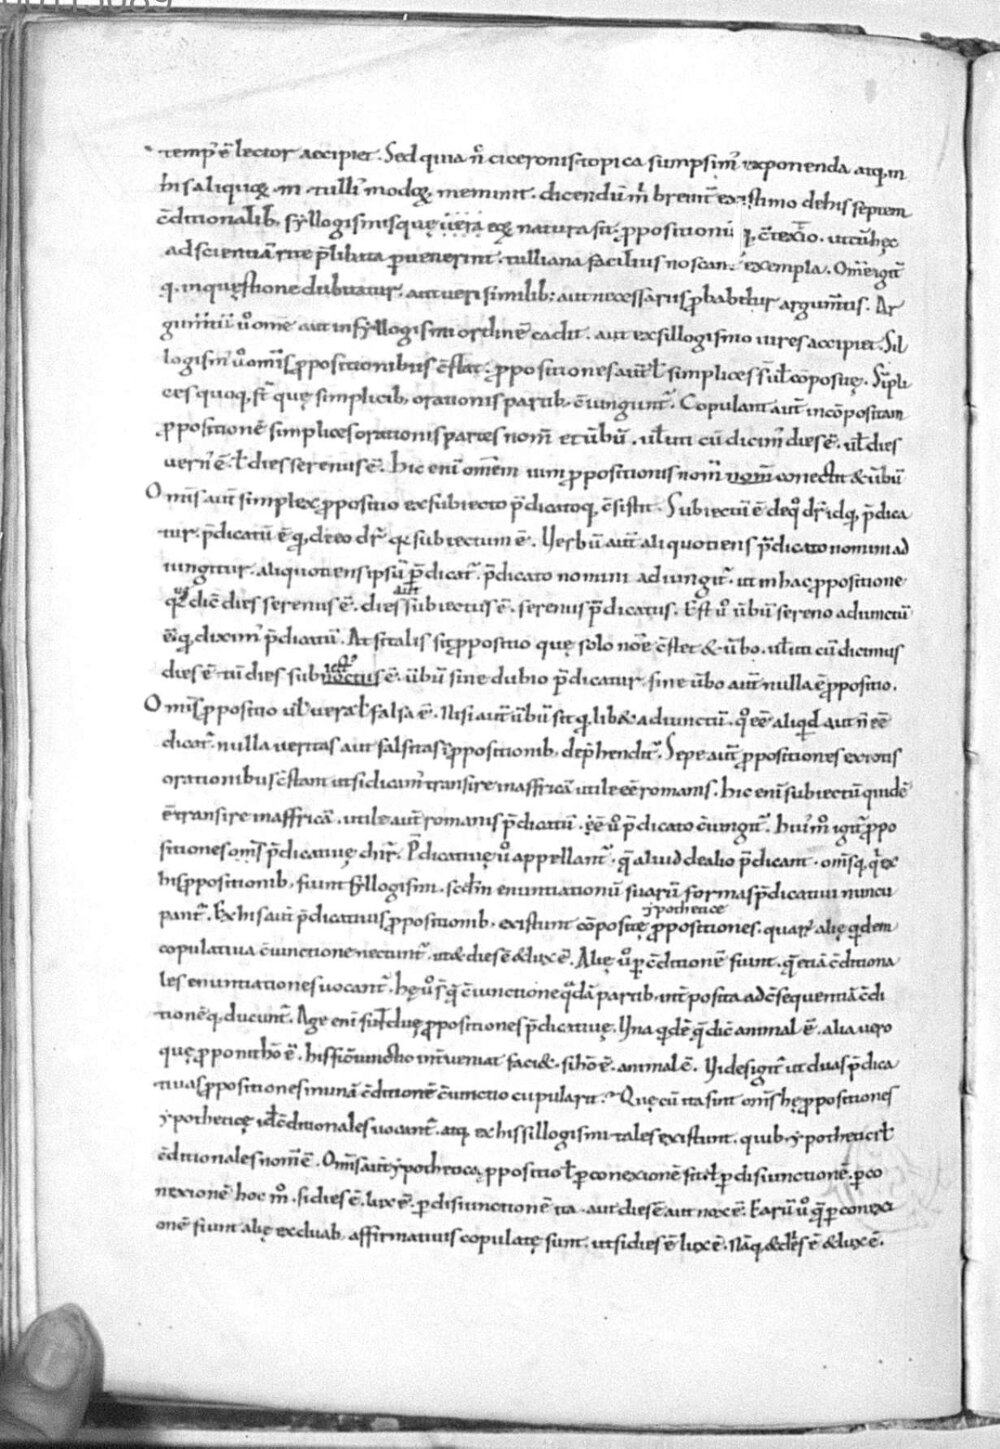 temp᷒ ē lector accipiet. Sed quia n̄ ciceronis topica sumpsim᷒ exponenda atq; in
his aliquoꝝ in tulli᷒ modoꝝ meminit. dicendū m̄ breuit̄ existimo de his septem
c̄ditionalib; syllogismis quę uera eoꝝ natura sit ꝓpositionū q; c̄textio. ut cū hęc
ad scientiā rite p̄libata peruenerint. tulliana facilius noscant᷒ exempla. Om̄e igit᷒
q̄ in quęstione dubitatur. aut uerisimilib; aut necessariis ꝓbabitur argum̄tis. Ar
gum̄tū u᷒o om̄e aut in syllogismi ordinē cadit. aut ex sillogismo uires accipiet. Sil
logism᷒ u᷒o om̄is ꝓpositionibus c̄stat. ꝓpositiones aut̄ ł simplices s̄ ł cōpositę. Sīpli
ces quoq; s̄t quę simplicib; orationis partib; c̄iungunt᷒. Copulant aut̄ incōpositam
ꝓpositionē simplices orationis partes nom̄ et ūbū. uł uti cū dicim᷒ dies ē. uł dies
uern᷒ ē. ł dies serenus ē. hic enī om̄em uim ꝓpositionis nom̄ nom̄ conectit & ūbū
Om̄is aut̄ simplex ꝓpositio ex subiecto p̄dicatoq; c̄sistit. Subiectū ē de q᷒ dr̄ id q; p̄dica
tur. p̄dicatū ē q; de eo dr̄ qđ subiectum ē. Verbū aut̄ aliquotiens p̄dicato nomini ad
iungitur. aliquotiens ipsū p̄dicat᷒. p̄dicato nomini adiungit᷒. ut in hac ꝓpositione
quę dic̄ dies serenus ē. dies aut̄ subiectus ē. serenus p̄dicatus. Est u᷒o ūbū sereno adiunctū
ē q; dixim᷒ p̄dicatū. At si talis sit ꝓpositio quę solo no᷒e c̄stet & ūbo. uł uti cū dicimus
dies ē tū dies subiectus ē. ūbū sine dubio p̄dicatur. sine ūbo aut̄ nulla ē ꝓpositio.
Om̄is ꝓpositio uł uera ł falsa ē. Nisi aut̄ ūbū sit q; lib& adiunctū. q᷒ ēē aliqd aut n̄ ēē
dicat᷒. nulla ueritas aut falsitas ī ꝓpositionib; dep̄hendit᷒. Sepe aut̄ ꝓpositiones ex totis
orationibus c̄stant ut si dicam᷒ transire in affricā utile ēē romanis. hic enī subiectū quidē
ē transire in affricā. utile aut̄ romanis p̄dicatū. ēē u᷒o p̄dicato c̄iungit᷒. hui᷒ m᷒ igit᷒ ꝓpo
sitiones om̄s p̄dicatiuę dicr̄. P̄dicatiuę u᷒o appellant᷒. q̄ aliud de alio p̄dicant. om̄s q; q̄ ex
his ꝓpositionib; fiunt syllogismi. scdm enuntiationū suarū formas p̄dicatiui nuncu
pant᷒. Ex his aut̄ p̄dicatiuis ꝓpositionib; existunt cōpositę ypotheticę ꝓpositiones. quar᷒ alię qdem
copulatiua c̄iunctione nectunt᷒. ut & dies ē & lux ē. Alię u᷒o ꝑ c̄ditionē fiunt. q̄ etiā c̄ditiona
les enuntiationes uocant᷒. hę u᷒o s̄t q̄ c̄iunctione q̄dā partib; int̄posita ad c̄sequentiā c̄di
tionēq; ducunt᷒. Age enī sint duę ꝓpositiones p̄dicatiuę. Vna qdē q̄ dic̄ animal ē. alia uero
quę ꝓponit hō ē. his si c̄iunctio int̄ueniat faci&. si hō ē. animal ē. Vides igit᷒ ut duas p̄dica
tiuas ꝓpositiones in unā c̄ditionē c̄iunctio cupularit. Quę cū ita sint om̄s hę ꝓpositiones
ypotheticę id ē c̄ditionales uocant᷒. atq; ex his sillogismi tales existunt. quib; ypotheticis ł
c̄ditionales nom̄ ē. Om̄is aut̄ ypothetica ꝓpositio ł ꝑ conexionē fit ł ꝑ disiunctionē. ꝑ co
nexionē hoc m᷒. si dies ē. lux ē. ꝑ disiunctionē ita. aut dies ē aut nox ē. Earū u᷒o q̄ ꝑ conexi
onē fiunt alię ex duab; affirmatiuis copulatę sunt. ut si dies ē lux ē. Nāq; & dies ē & lux ē.